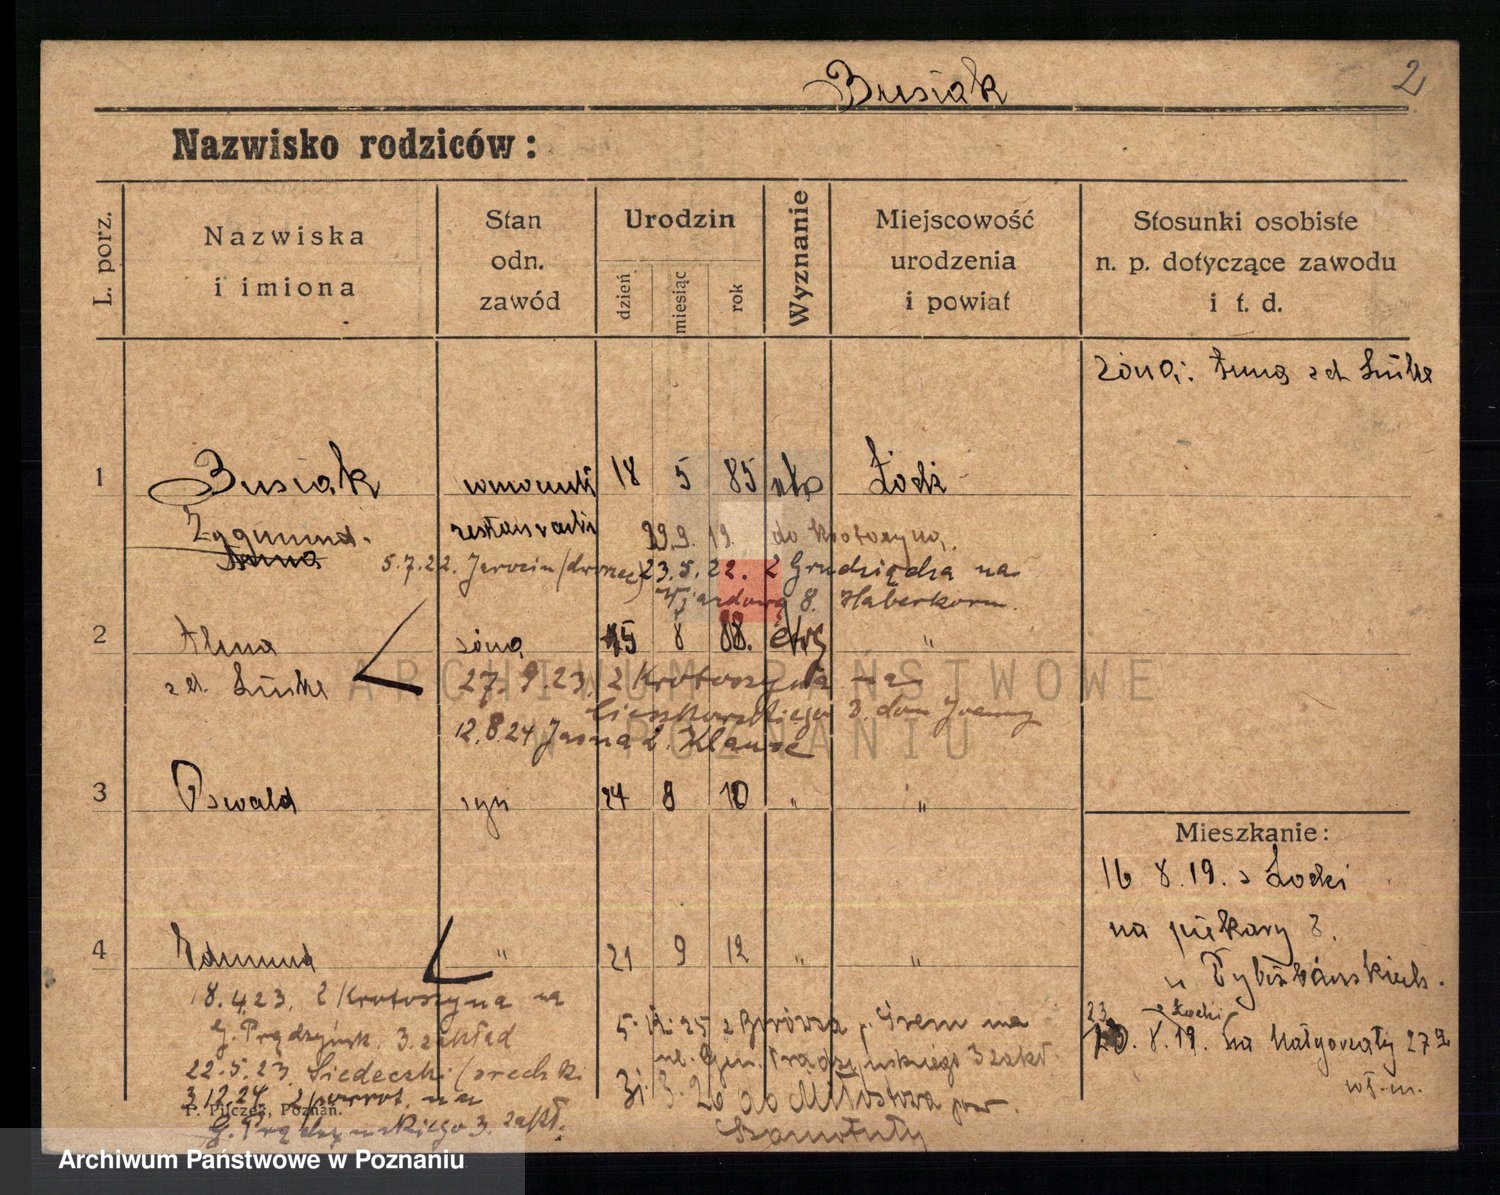 Busiak
2
Nazwisko rodziców:
L. porz.
Nazwiska
i imiona
Stan
odn.
zawód
Urodzin
dzień
miesiąc
rok
Wyznanie
Miejscowość
urodzenia
i powiat
Stosunki osobiste
n. p. dotyczące zawodu
i t. d.
żona: Anna zd. Linke
1
Busiak
18 5 85
Łódź
Zygmund
Anna
29.9.19. do Krotoszyna
5.7.22. Jarocin (dworzec)
23.5.22. z Grudziądza na
Wjazdową 8. Haberkorn
2
Anna
żona
15 8 88.
ewg
"
zd. Linke
27.9.23. z Krotoszyna na
Cieszkowskiego 3. dom
12.8.24 Jasna 2. Klause
3
Oswald
syn
24 8 10
"
"
Mieszkanie:
16 8.19. z Łodzi
na piekary
u
4
Edmund
"
21 9 12
"
"
18.4.23. z Krotoszyna na
G. Prądzyńsk. 3. zakład
22.5.23. Siedleczki
3.12.24. z powrot. na
G. Prądzyńskiego 3. zakł.
5.12.25 z p. Śrem na
ul. Gen. Prądzyńskiego 3 zakł.
31.3.26 do Miłostowa pow.
Szamotuły
23
z Łodzi
8.19. na Małgorzaty 27
wł. m.
P. Pilczek, Poznań.
ARCHIWUM PAŃSTWOWE
W POZNANIU
Archiwum Państwowe w Poznaniu